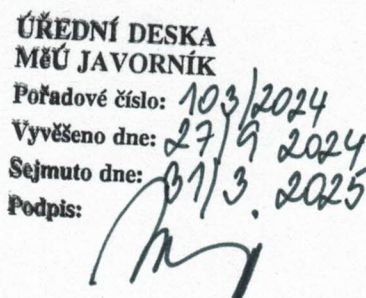 ÚŘEDNÍ DESKA
MěÚ JAVORNÍK
Pořadové číslo: 103/2024
Vyvěšeno dne: 27/9 2024
Sejmuto dne: 31/3. 2025
Podpis: